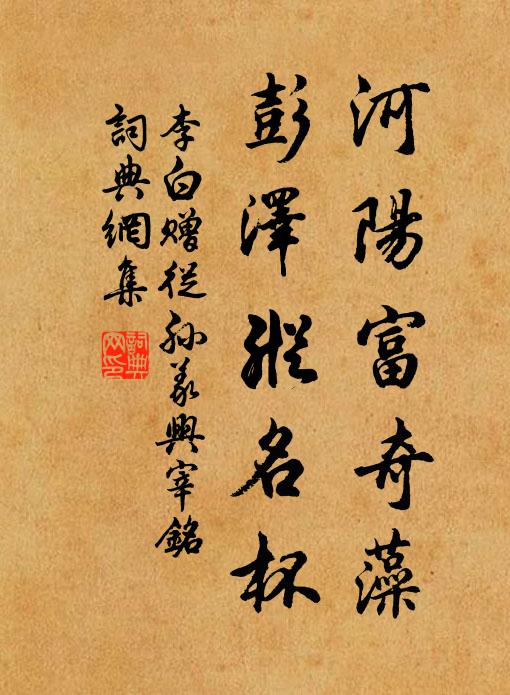 河陽富奇藻
彭澤縱名杯
李白贈從孫義興宰銘
詞典網集
詞典網印